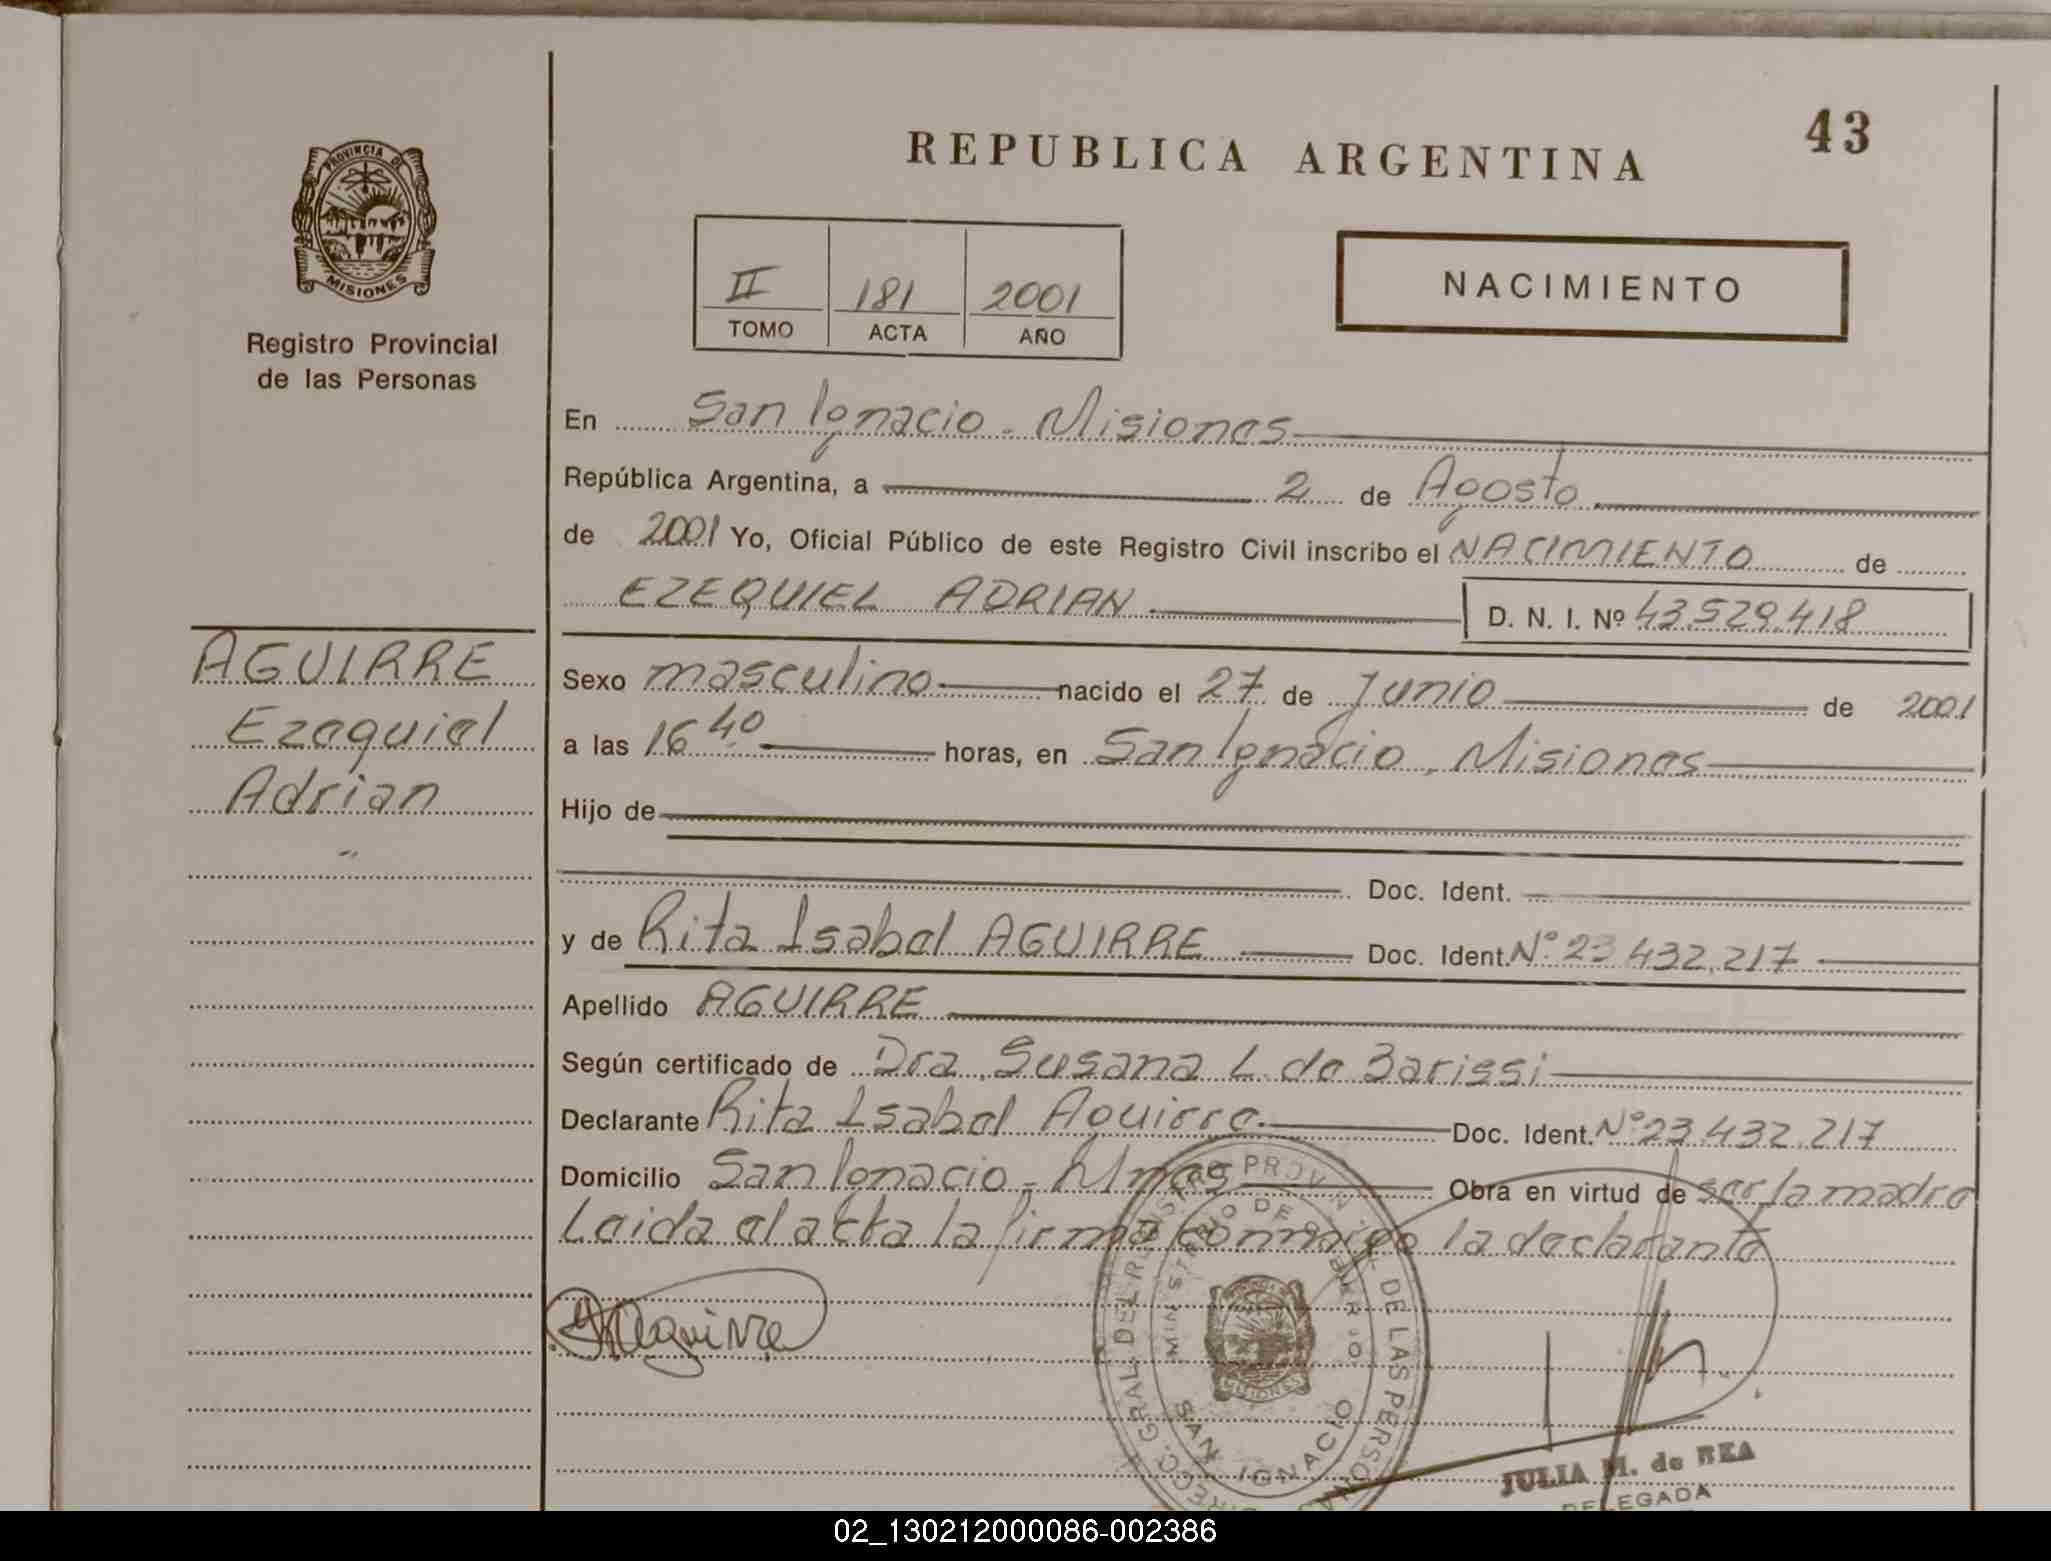 43
REPUBLICA ARGENTINA
PROVINCIA DE
MISIONES
Registro Provincial
de las Personas
II 181 2001
TOMO ACTA AÑO
NACIMIENTO
En San Ignacio - Misiones
República Argentina, a 2 de Agosto
de 2001 Yo, Oficial Público de este Registro Civil inscribo el NACIMIENTO de
EZEQUIEL ADRIAN D. N. I. Nº 43.529.418
AGUIRRE
Ezequiel
Adrian
Sexo masculino nacido el 27 de Junio de 2001
a las 16 40 horas, en San Ignacio, Misiones
Hijo de
Doc. Ident.
y de Rita Isabel AGUIRRE Doc. Ident. Nº 23 432.217
Apellido AGUIRRE
Según certificado de Dra. Susana L. de Barissi
Declarante Rita Isabel Aguirre Doc. Ident. Nº 23.432.217
Domicilio San Ignacio - Mnes Obra en virtud de ser la madre
Leida el acta la firma conmigo la declarante
Aguirre
DIRECC. GRAL. DEL REGISTRO PROVIN. DE LAS PERSONAS
MINISTERIO DE GOBIERNO
MISIONES
SAN IGNACIO
JULIA M. de BEA
DELEGADA
02_130212000086-002386